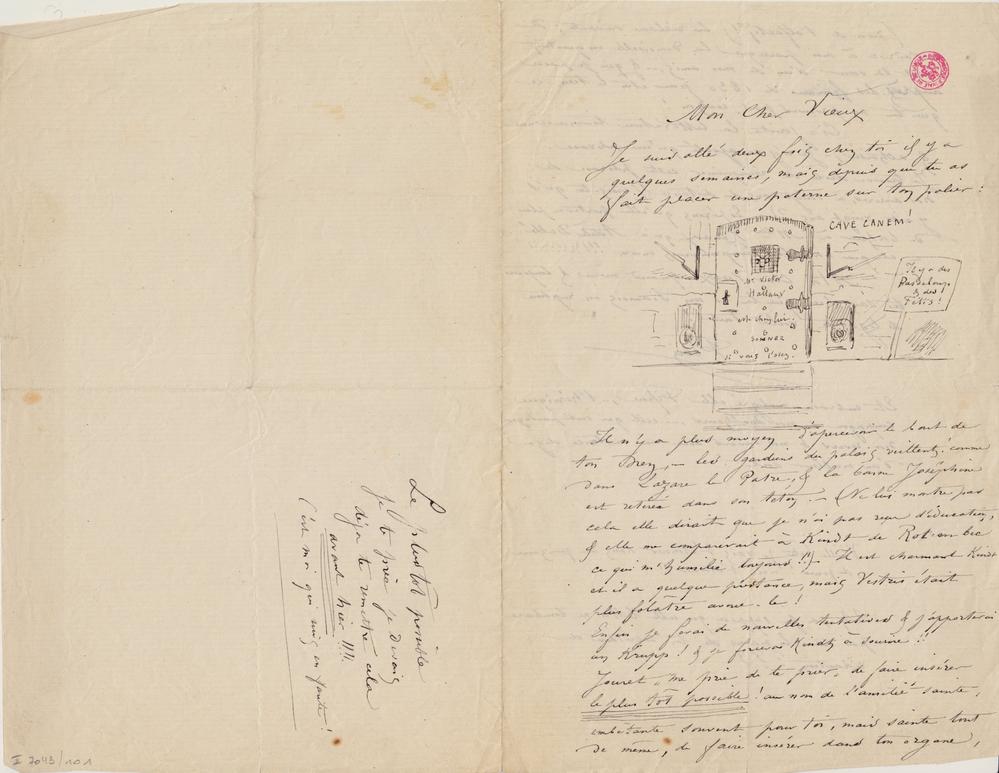 Mon Cher Vieux
Je suis allé deux fois chez toi il y a
quelques semaines, mais depuis que tu as
fait placer une poterne sur ton palier :
CAVE CANEM !
Mr Victor
Hallaux
est chez lui.
SONNEZ
s'il vous plaît.
Il y a des
Pasdeloup
& des
Fétis !
Il n'y a plus moyen d'apercevoir le bout de
ton nez, – les gardiens du palais veillent ! comme
dans Lazare le Pâtre, & la bonne Joséphine
est retirée dans son – (Ne lui montre pas
cela elle dirait que je n'ai pas reçu d'éducation,
& elle me comparerait à Kindt de Rob-en-bec
ce qui m'humilie toujours !!) Il est charmant Kindt
et il a quelque prestance, mais Vestris était
plus folâtre avoue-le !
Enfin je ferai de nouvelles tentatives & j'apporterai
un Krupp ! & je forcerai Kindt à sourire !!
Jouret, me prie de te prier, de faire insérer
le plus tôt possible ! au nom de l'amitié sainte,
embêtante souvent pour toi, mais sainte tout
de même, de faire insérer dans ton organe,
Le plus tôt possible
je te prie je devais
déjà te remettre cela
avant hier !!!!
C'est moi qui suis en faute !
II 7043/101